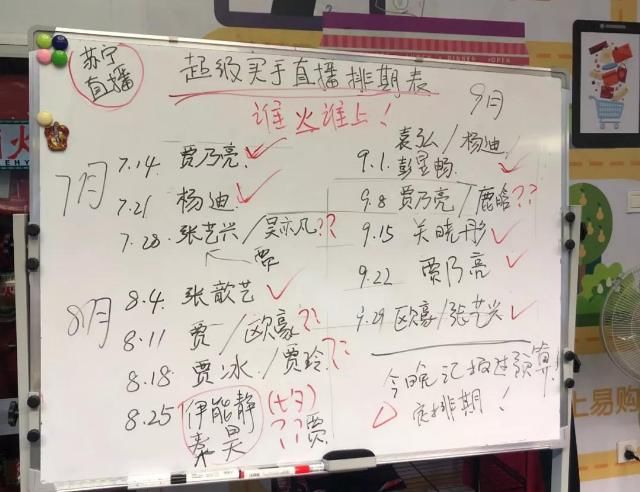 苏宁
直播
超级买手直播排期表
谁火谁上！
7月
7.14 贾乃亮
7.21 杨迪
7.28 张艺兴/吴亦凡??
贾
8月
8.4 张歆艺
8.11 贾/欧豪??
8.18 贾 冰/贾玲??
8.25 伊能静 (七夕)
秦昊 ??贾
9月
袁弘/杨迪
9.1 彭昱畅
9.8 贾乃亮/鹿晗??
9.15 关晓彤
9.22 贾乃亮
9.29 欧豪/张艺兴
今晚记报过预算！
定排期！
OPEN
上易购